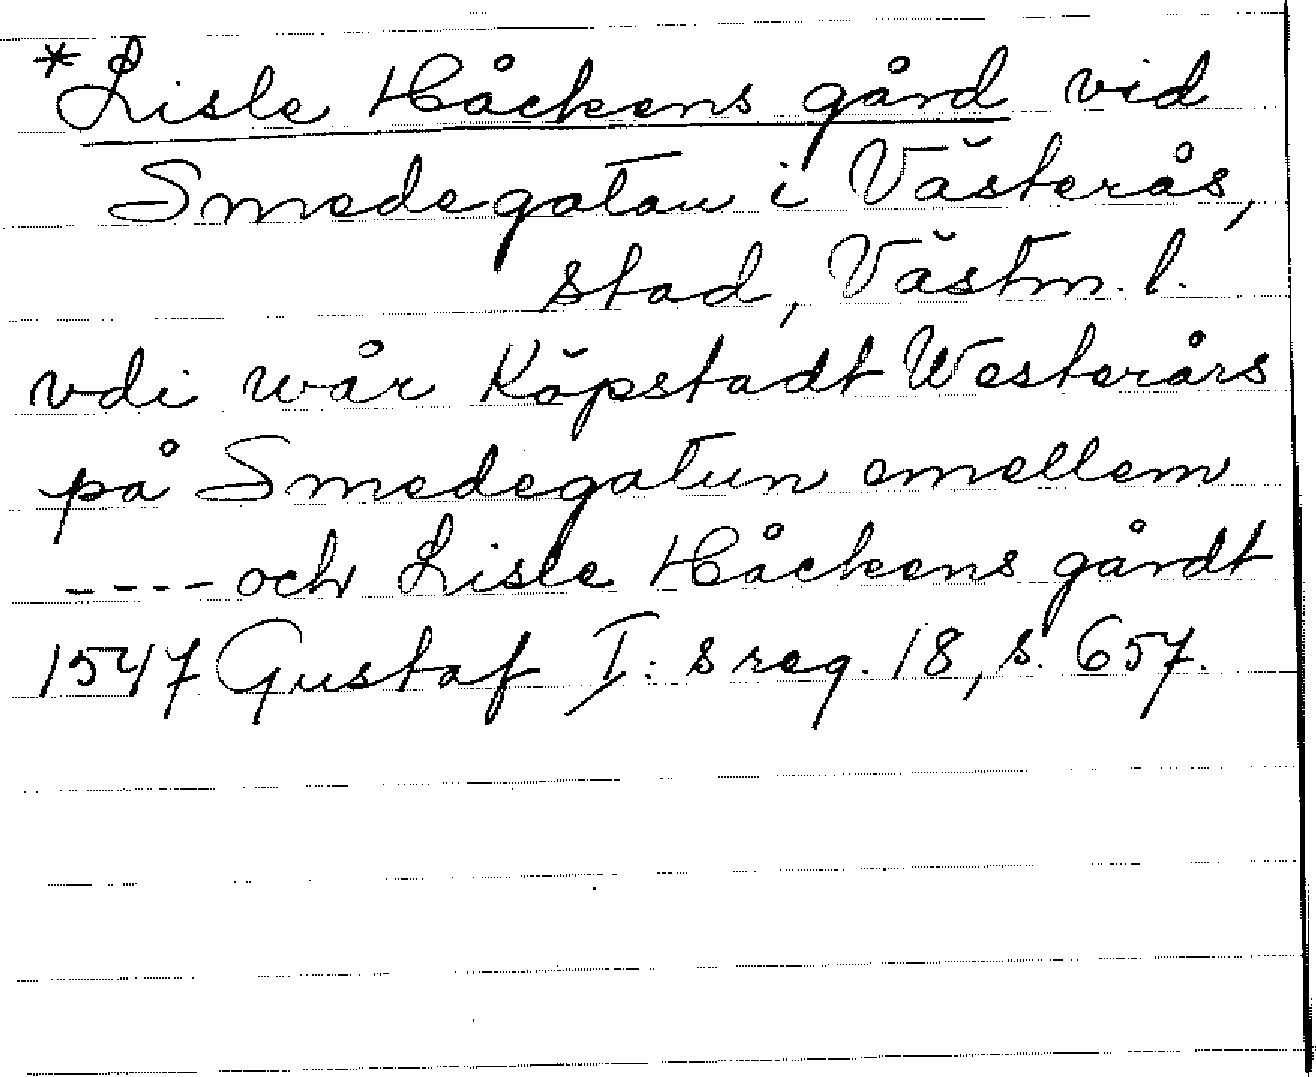 *Lisle Håckens gård vid
Smedegatan i Västerås,
stad, Västm. l.
vdi wår Köpstadt Westerårs
på Smedegatun emellem
---- och Lisle Håckens gårdt
1547 Gustaf I: s reg. 18, s. 657.